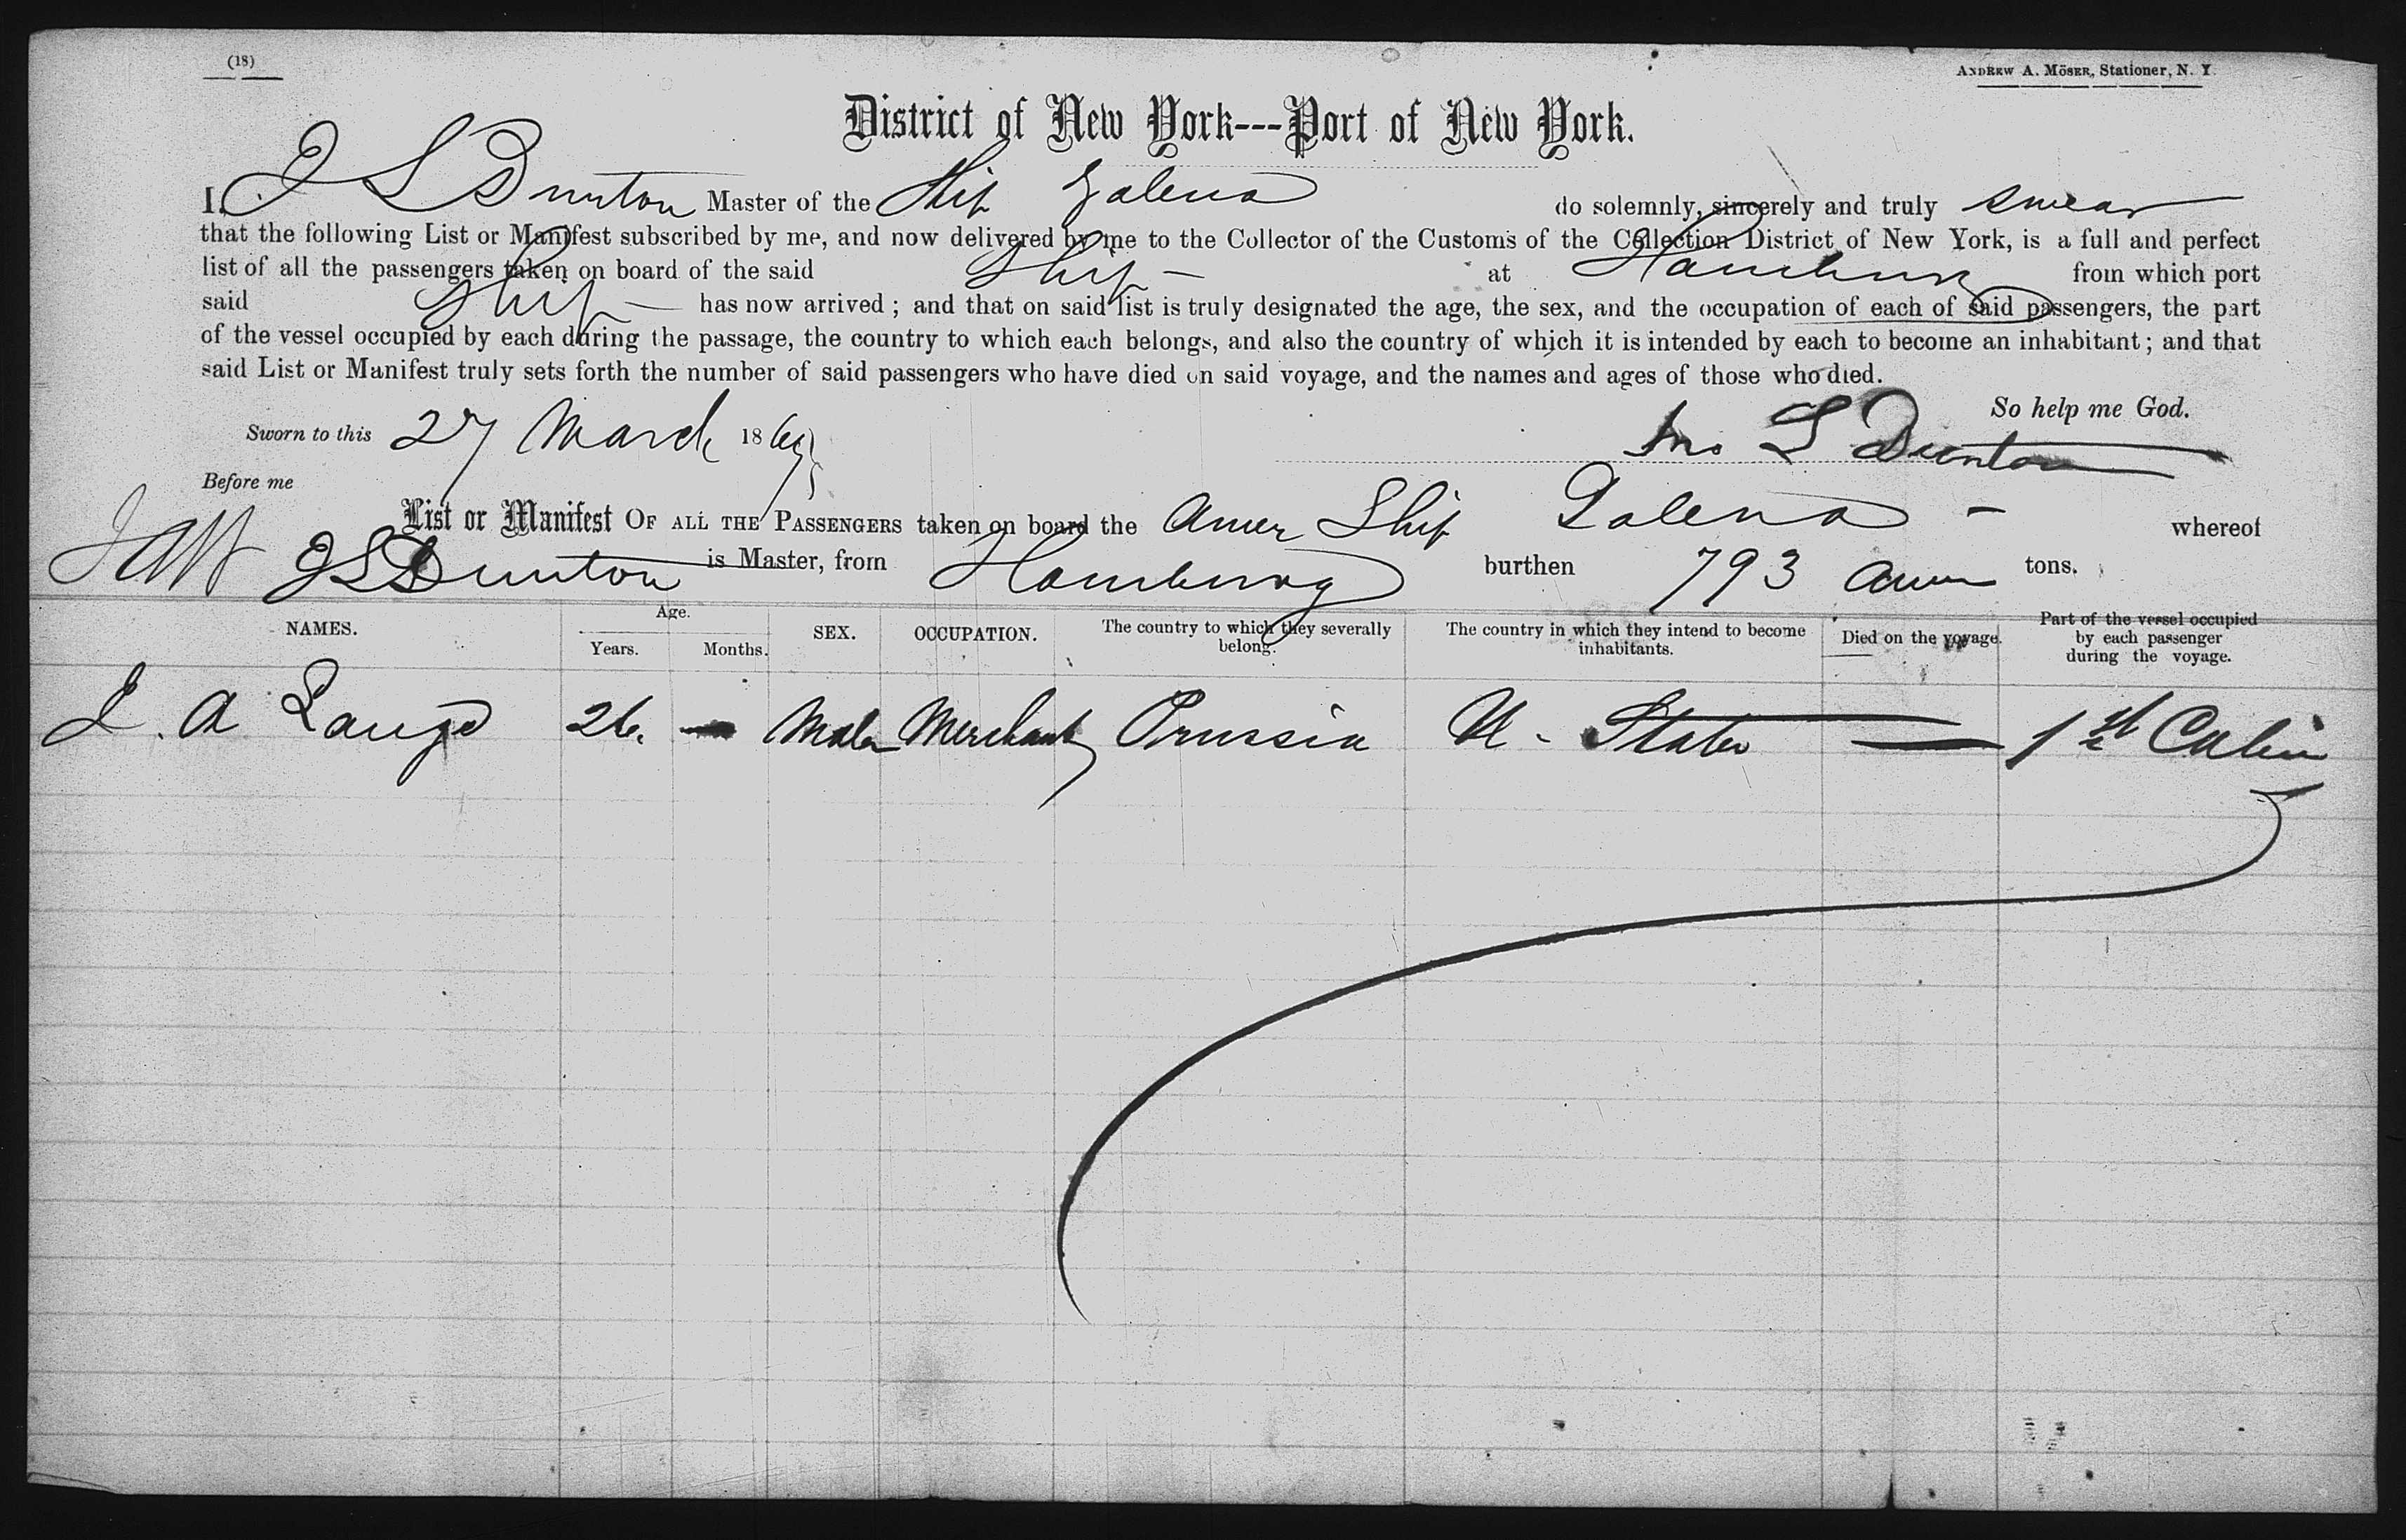 (18)
ANDREW A. MÖSER, Stationer, N. Y.
District of New York---Port of New York.
I, J S Dunton Master of the Ship Galena do solemnly, sincerely and truly swear
that the following List or Manifest subscribed by me, and now delivered by me to the Collector of the Customs of the Collection District of New York, is a full and perfect
list of all the passengers taken on board of the said Ship at Hamburg from which port
said Ship has now arrived ; and that on said list is truly designated the age, the sex, and the occupation of each of said passengers, the part
of the vessel occupied by each during the passage, the country to which each belongs, and also the country of which it is intended by each to become an inhabitant ; and that
said List or Manifest truly sets forth the number of said passengers who have died on said voyage, and the names and ages of those who died.
So help me God.
Sworn to this 27 March 18
Jno S Dunton
Before me
List or Manifest OF ALL THE PASSENGERS taken on board the Amer Ship Galena - whereof
J S Dunton is Master, from Hamburg burthen 793 tons.
NAMES. Age. Years. Months. SEX. OCCUPATION. The country to which they severally belong. The country in which they intend to become inhabitants. Died on the voyage. Part of the vessel occupied by each passenger during the voyage.
J. A Lange 26. — Male Merchant Prussia U - States — 1st Cabin